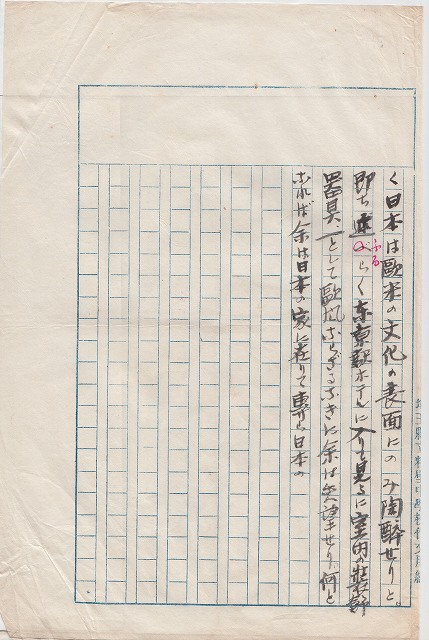 く日本は歐米の文化の表面にのみ陶醉せりと
即ち べらく東京驛ホテルに入りて見るに室内の裝飾
器具、一として歐風ならざるなきに余は失望せり、何と
なれば余は日本の家に在りて專ら日本の